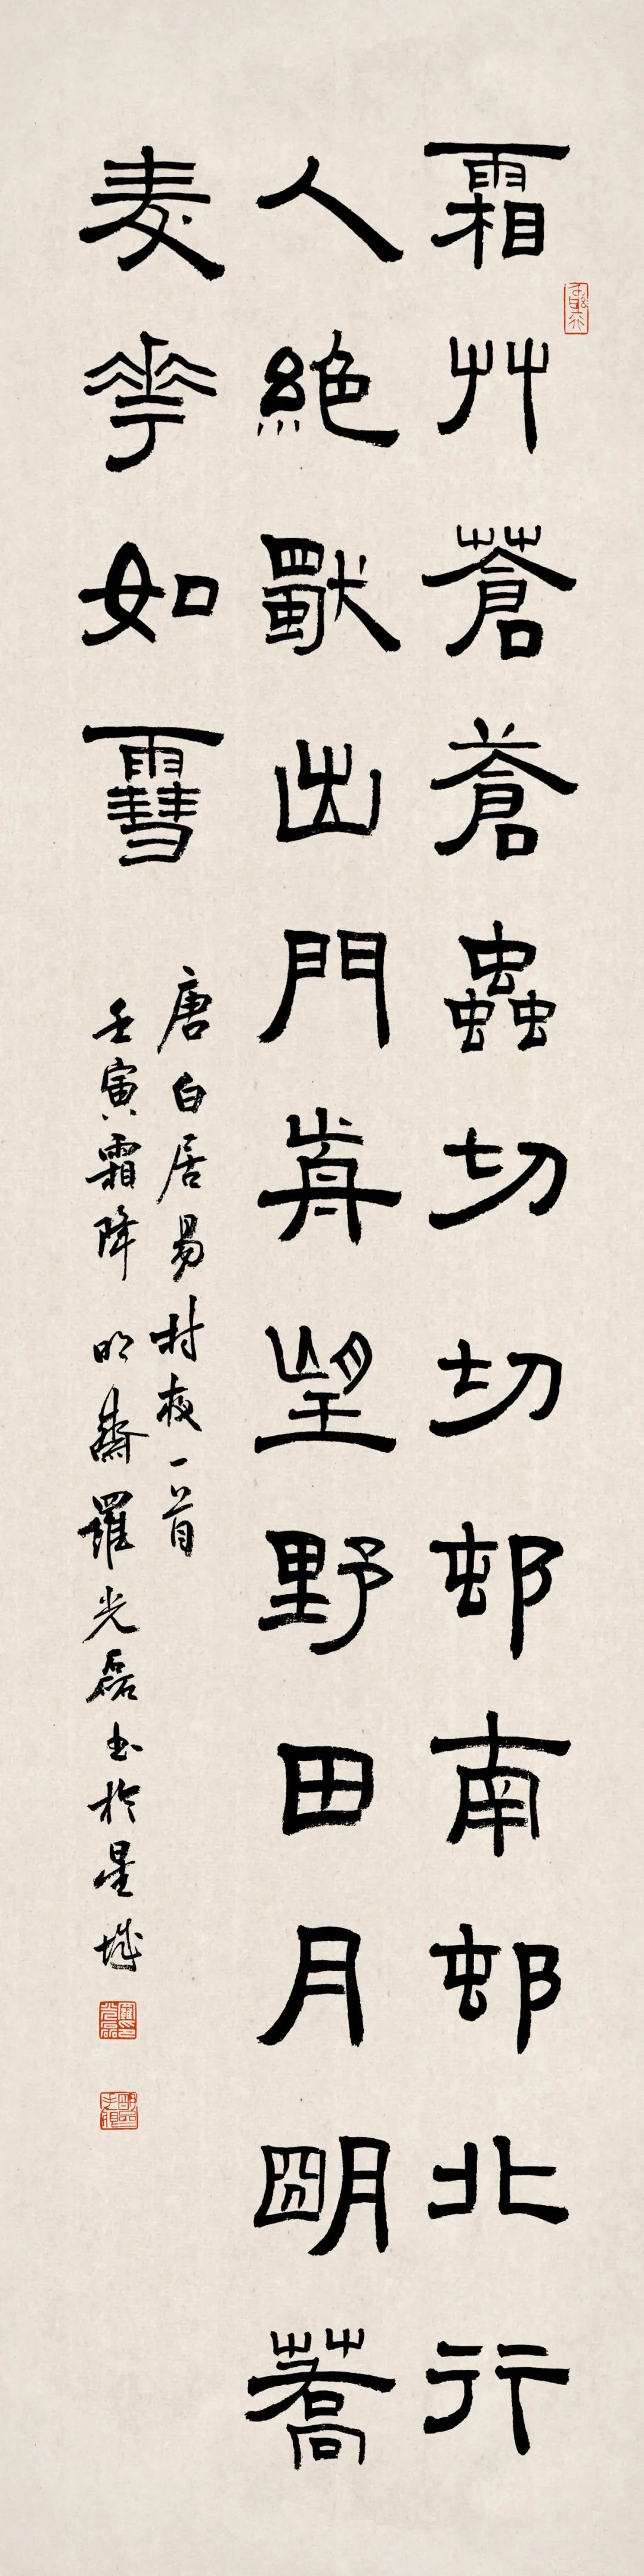 霜艸蒼蒼蟲切切邨南邨北行
人絶獨出門歬望野田月朙蕎
麦華如䨮
唐白居易村夜一首
壬寅霜降明齋羅光磊书於星城